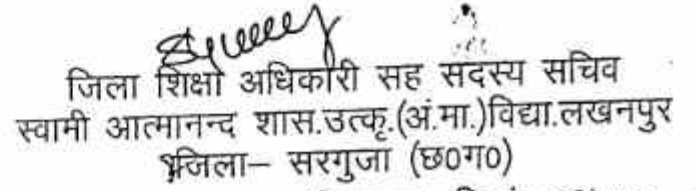 जिला शिक्षा अधिकारी सह सदस्य सचिव
स्वामी आत्मानन्द शास.उत्कृ.(अं.मा.)विद्या.लखनपुर
जिला– सरगुजा (छ0ग0)